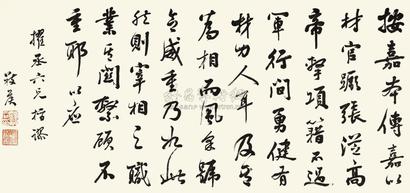 按嘉本傳嘉以
材官蹶張從高
帝擊項籍不過
軍行間勇健有
材力人耳及其
為相而風采號
令威重乃如此
然則宰相之職
業其關繫顧不
重耶以應
丞六兄